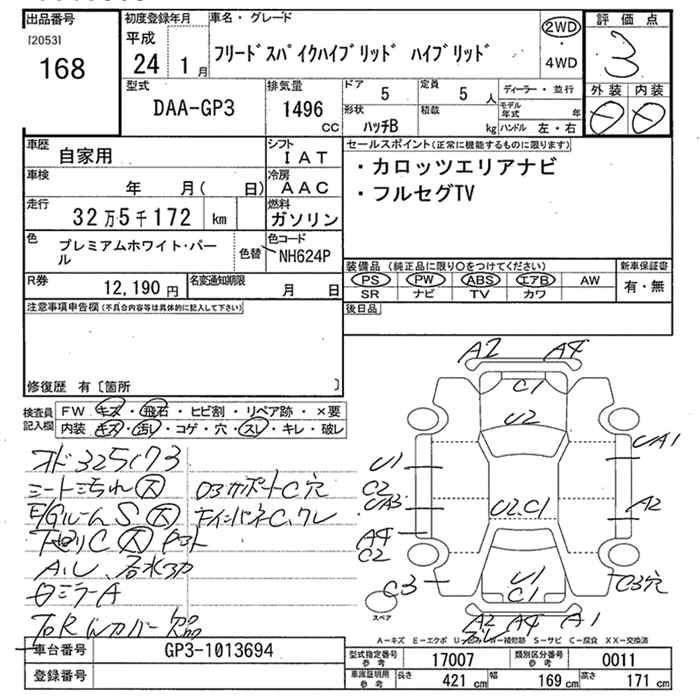 出品番号
[2053]
168
初度登録年月
平成
24 1月
車名・グレード
フリードスパイクハイブリッド ハイブリッド
2WD
・
4WD
評価点
3
外装 内装
型式
DAA-GP3
排気量
1496
CC
ドア 5
形状
ハッチB
定員 5 人
積載
kg
ディーラー・並行
モデル年式 年
ハンドル 左・右
車歴
自家用
シフト
IAT
車検
年 月( 日)
冷房
AAC
走行
32万5千172 km
燃料
ガソリン
色
プレミアムホワイト・パール
色替
色コード
NH624P
R券
12,190円
名変通知期限
月 日
セールスポイント(正常に機能するものに限ります)
・カロッツエリアナビ
・フルセグTV
装備品(純正品に限り○をつけてください)
PS PW ABS エアB AW
SR ナビ TV カワ
新車保証書
有・無
後日品
注意事項申告欄(不具合内容等は具体的に記入して下さい)
修復歴 有〔箇所 〕
検査員記入欄
FW キズ・飛石・ヒビ割・リペア跡・×要
内装 キズ・汚レ・コゲ・穴・スレ・キレ・破レ
325173
A2 A4
C1
U2
U1
UA1
C2
UA3
U2.C1
A2
A4
C2
C3
U1
C1
C3穴
A2 A4 A1
スペア
A-キズ E-エクボ U-凹み W-補修跡 S-サビ C-腐食 XX-交換済
車台番号
GP3-1013694
登録番号
型式指定番号参考
17007
類別区分番号参考
0011
車庫証明用参考
長さ 421 cm
幅 169 cm
高さ 171 cm